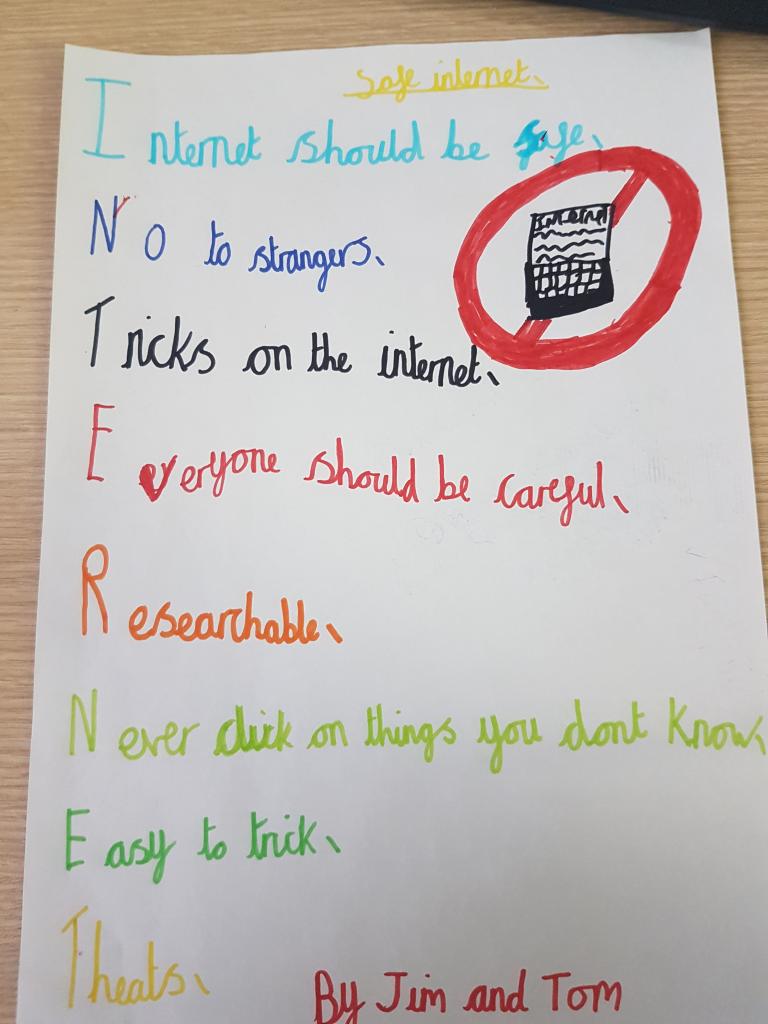 Safe internet.
Internet should be safe.
No to strangers.
Internet
Tricks on the internet.
Everyone should be careful.
Researchable.
Never click on things you dont know.
Easy to trick.
Theats.
By Jim and Tom